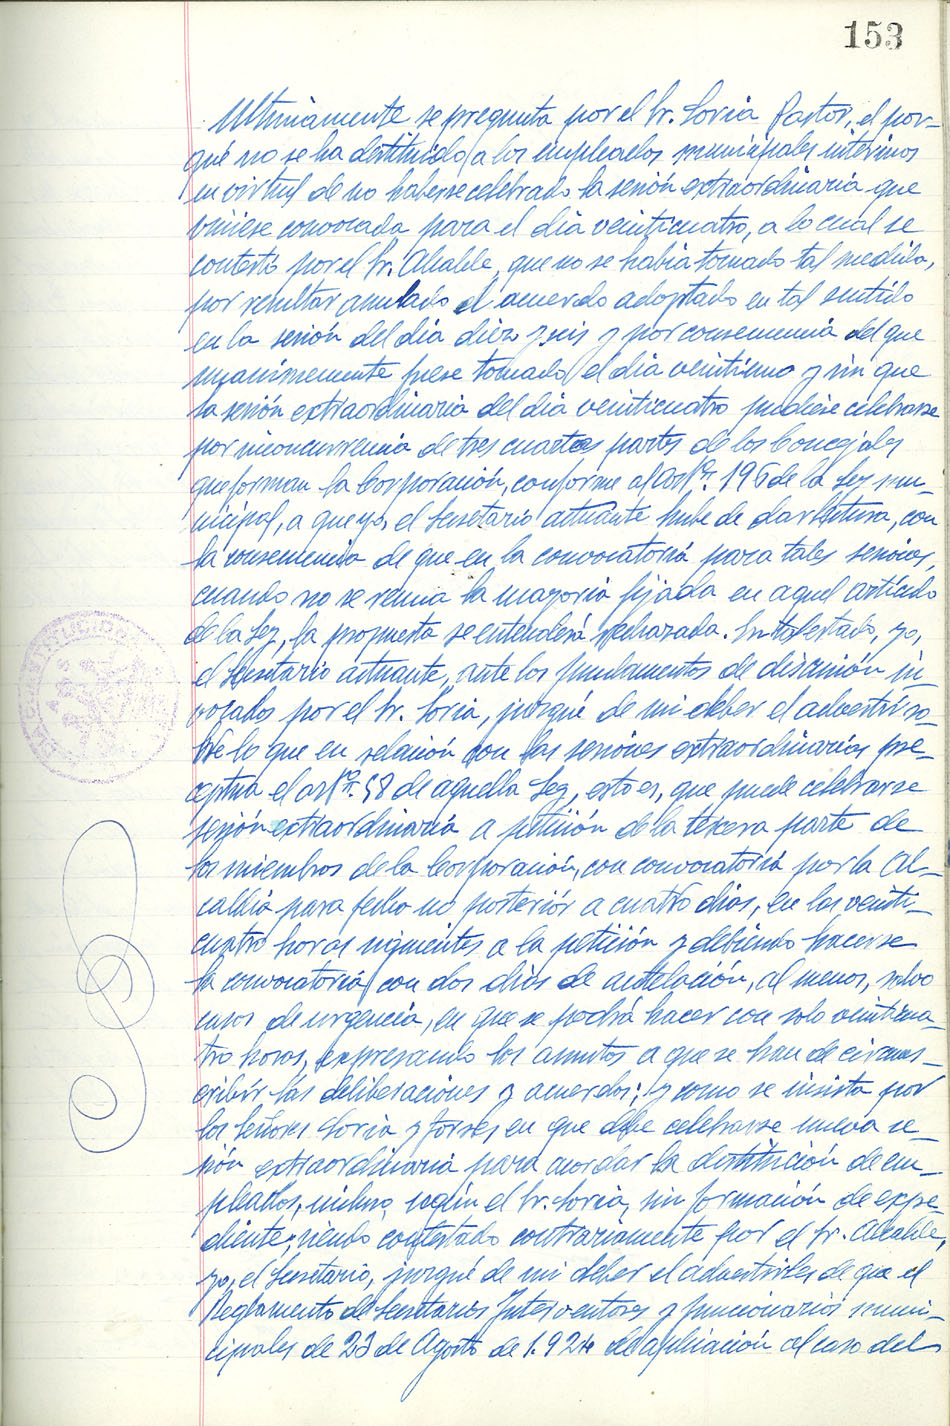 153
Ultimamente se pregunta por el Sr. Soria Pastor, el por-
qué no se ha destituido a los empleados municipales interinos
en virtud de no haberse celebrado la sesión extraordinaria que
viniese convocada para el dia veinticuatro, a lo cual se
contestó por el Sr. Alcalde, que no se habia tomado tal medida,
por resultar anulado el acuerdo adoptado en tal sentido
en la sesión del dia diez y seis y por consecuencia del que
unanimemente fuese tomado el dia veintiuno y sin que
la sesión extraordinaria del dia veinticuatro pudiese celebrarse
por inconcurrencia de tres cuartas partes de los Concejales
que forman la Corporación, conforme al artº. 196 de la Ley mu-
nicipal, a que yo, el Secretario actuante hube de dar lectura, con
la consecuencia de que en la convocatoria para tales sesiones,
cuando no se reunia la mayoria fijada en aquel articulo
de la Ley, la propuesta se entenderá rechazada. En tal estado, yo,
el Secretario actuante, ante los fundamentos de discusión in-
vocados por el Sr. Soria, juzgué de mi deber el advertir so-
bre lo que en relación con las sesiones extraordinarias pre-
ceptua el artº. 58 de aquella Ley, esto es, que puede celebrarse
sesión extraordinaria a petición de la tercera parte de
los miembros de la Corporación, con convocatoria por la Al-
caldia para fecha no posterior a cuatro dias, en las veinti-
cuatro horas siguientes a la petición y debiendo hacerse
la convocatoria con dos dias de antelación, al menos, salvo
casos de urgencia, en que se podrá hacer con solo veinticua-
tro horas, expresando los asuntos a que se han de circuns-
cribir las deliberaciones y acuerdos; y como se insista por
los Señores Soria y Forses en que debe celebrarse nueva se-
sión extraordinaria para acordar la destitución de em-
pleados, incluso, según el Sr. Soria, sin formación de expe-
diente, siendo contestado contrariamente por el Sr. Alcalde,
yo, el Secretario, juzgué de mi deber el advertirles de que el
Reglamento de Secretarios Interventores y funcionarios muni-
cipales de 23 de Agosto de 1.924 de aplicación al caso del